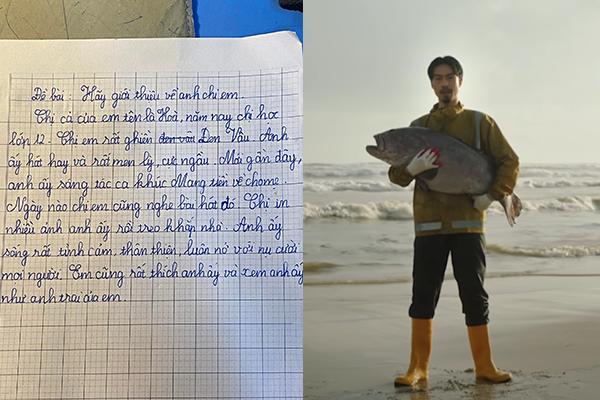 Đề bài: Hãy giới thiệu về anh chị em.
Chị cả của em tên là Hoà, năm nay chị học
lớp 12. Chị em rất ghiền đen vâu Đen Vâu. Anh
ấy hát hay và rất men lỳ, cực ngầu. Mà gần đây,
anh ấy sáng tác ca khúc Mang tiền về cho mẹ.
Ngày nào chị em cũng nghe bài hát đó. Chị in
nhiều ảnh anh ấy rồi treo khắp nhà. Anh ấy
sống rất tình cảm, thân thiện, luôn nở với nụ cười
mọi người. Em cũng rất thích anh ấy và xem anh ấy
như anh trai của em.